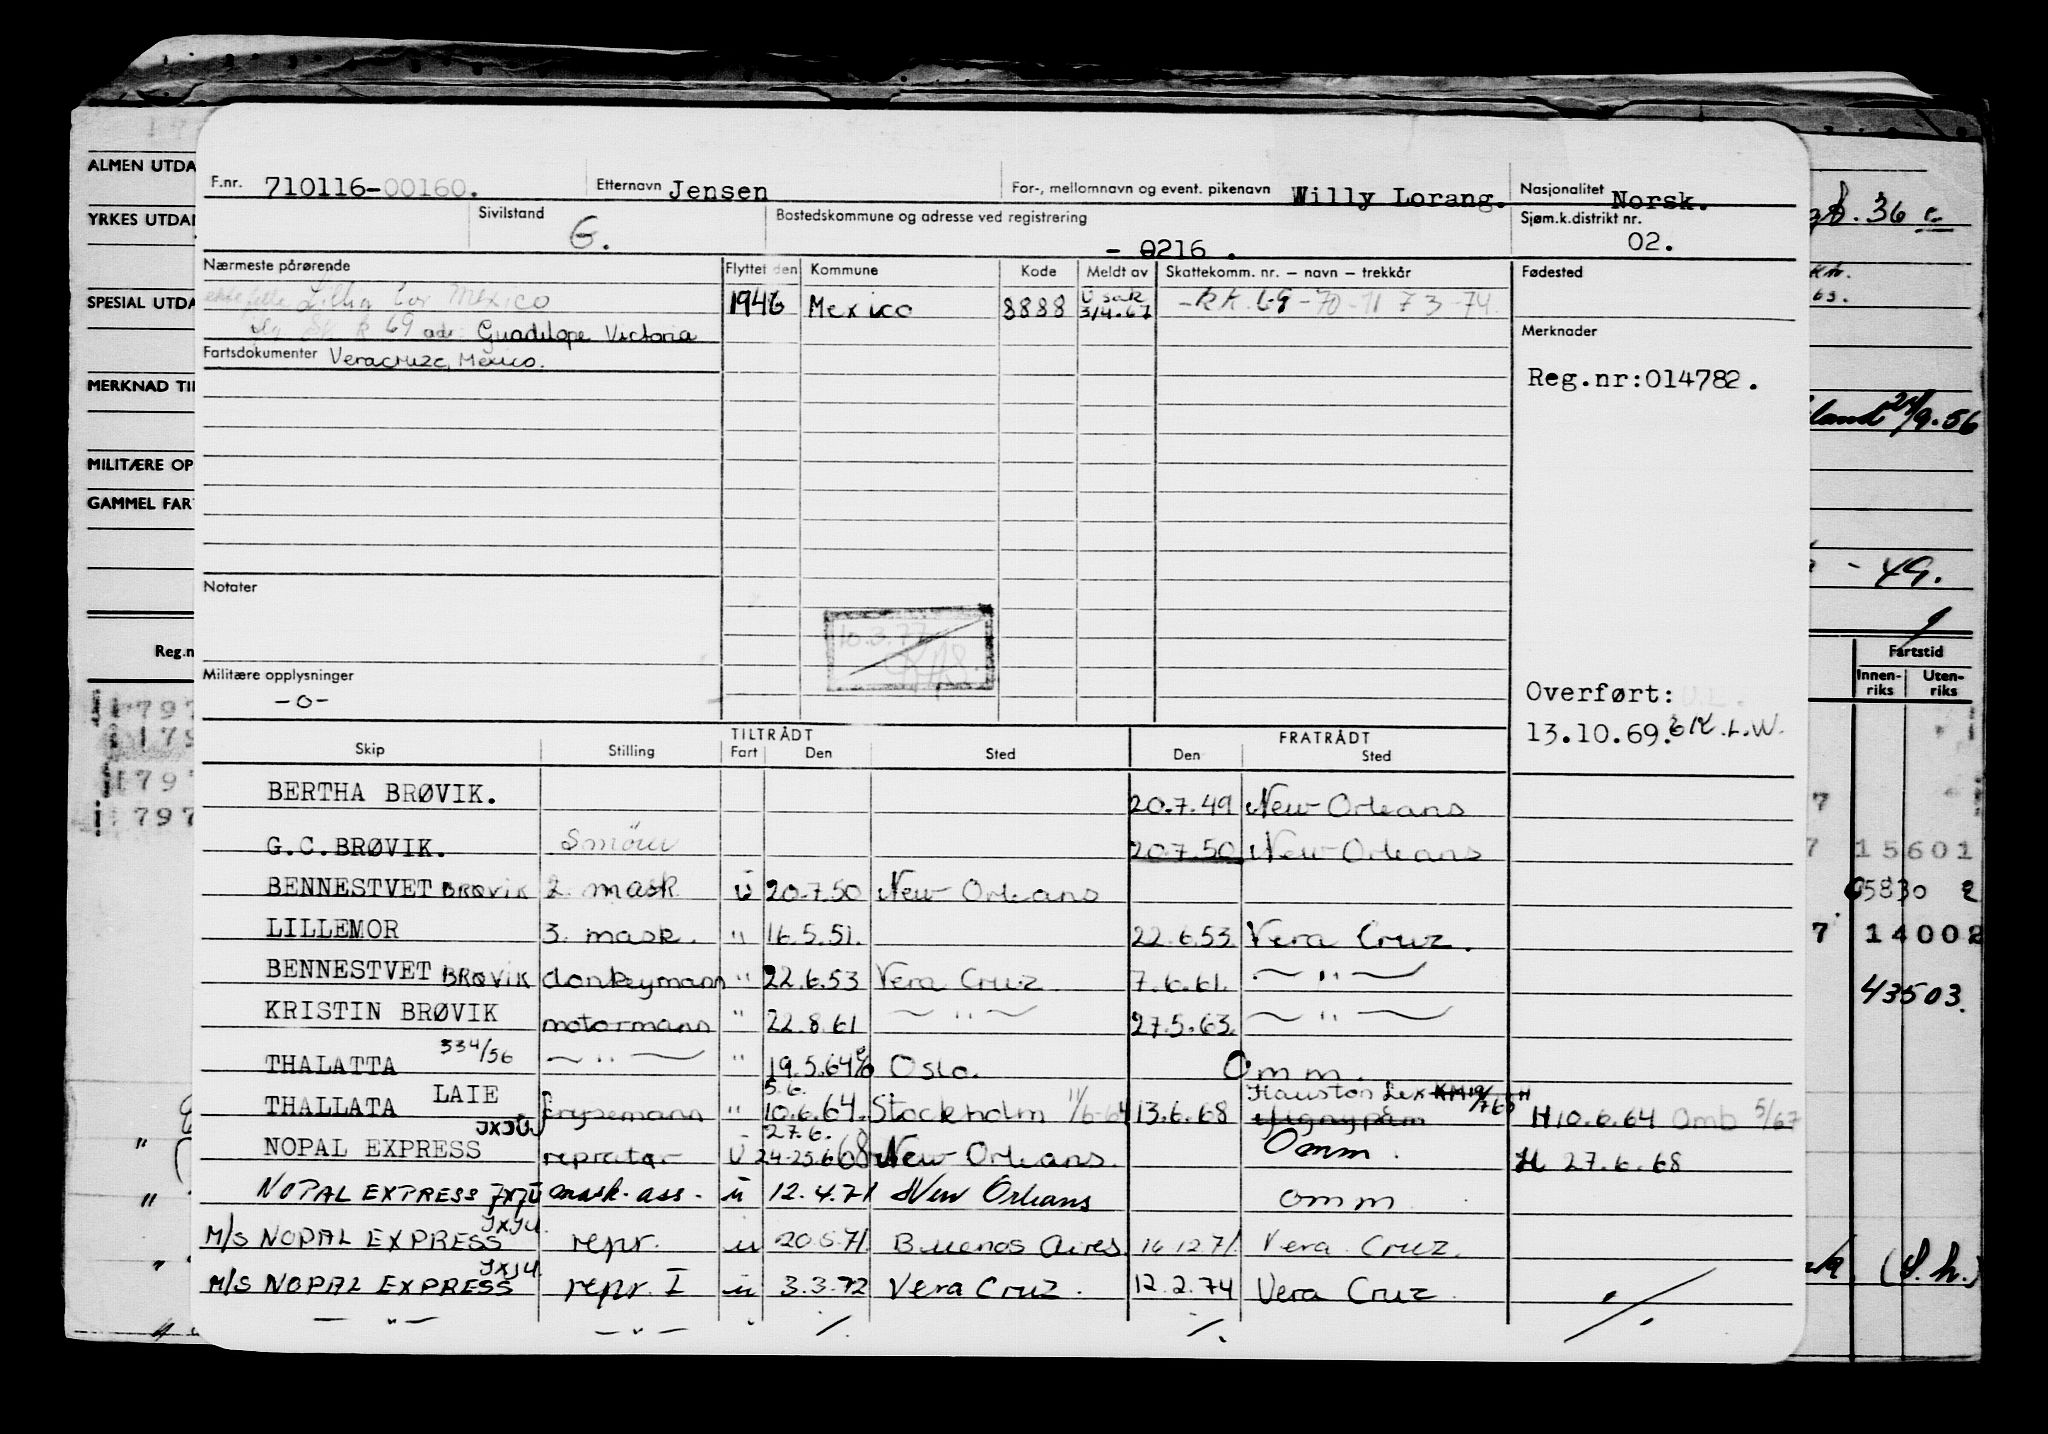 F.nr. 710116-00160. Etternavn Jensen For-, mellomnavn og event. pikenavn Willy Lorang. Nasjonalitet Norsk.
Sivilstand G. Bostedskommune og adresse ved registrering - 0216 . Sjøm.k.distrikt nr. 02.
Nærmeste pårørende Flyttet den Kommune Kode Meldt av Skattekomm. nr. – navn – trekkår Fødested
Mexico 1946 Mexico 8888 3/4.67 69-70-71 73-74.
69 adr: Guadelope Victoria Merknader
Fartsdokumenter Veracruze, Mexico.
Reg.nr:014782.
Notater
10.3.77
Militære opplysninger
-o-
Overført:
13.10.69. K.L.W.
TILTRÅDT FRATRÅDT
Skip Stilling Fart Den Sted Den Sted
BERTHA BRØVIK. 20.7.49 New Orleans
G.C.BRØVIK. Smører 20.7.50 New Orleans
BENNESTVET BRØVIK 2. mask ü 20.7.50 New Orleans
LILLEMOR 3. mask. " 16.5.51. 22.6.53 Vera Cruz.
BENNESTVET BRØVIK donkeymann " 22.6.53 Vera Cruz 7.6.61. — " —
KRISTIN BRØVIK motormann " 22.8.61 — " — 27.5.63. — " —
THALATTA 334/56 — " — " 19.5.64 Oslo. Omm.
THALLATA LAIE frysemann " 5.6. 10.6.64. Stockholm 11/6-64 13.6.68 Houston H10.6.64 Omb 5/67
NOPAL EXPRESS JXJU repratør Ü 27.6. 24-25.6.68 New Orleans. Omm. H 27.6.68
NOPAL EXPRESS JXJU mask. ass. ü 12.4.71 New Orleans omm
M/S NOPAL EXPRESS JXJU. repr. ü 20.5.71. Buenos Aires 16.12.71. Vera Cruz.
M/S NOPAL EXPRESS JXJU. repr. I ü 3.3.72 Vera Cruz. 12.2.74 Vera Cruz.
— " — — " — ./. ./. ./.
ALMEN UTDA
YRKES UTDA
SPESIAL UTDA
MERKNAD TI
MILITÆRE OP
GAMMEL FAR
Reg.n
1797
179
1797
1797
36
24/9.56
- 49.
Fartstid
Innen-riks Uten-riks
7
7 15601
05830 2
7 14002
43503.
(S.h.)